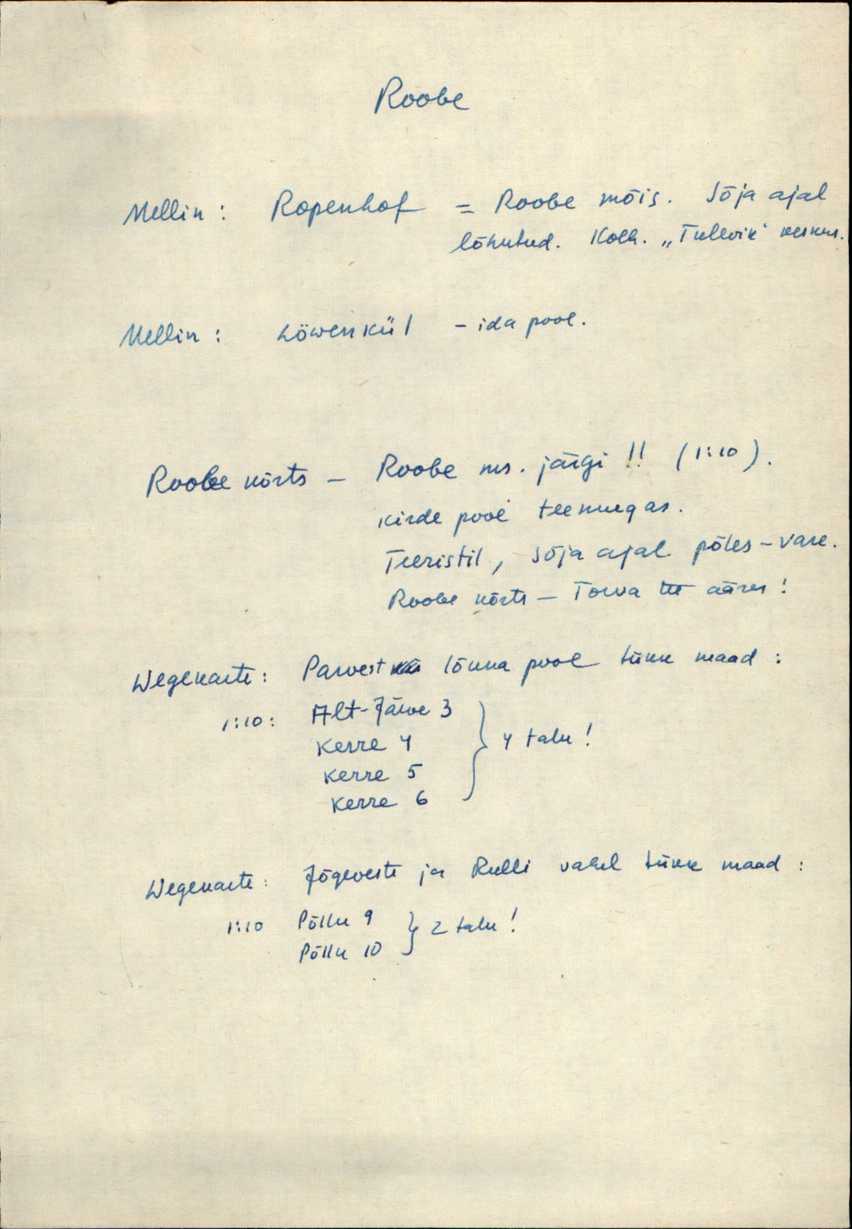 Roobe
Mellin: Ropenhof = Roobe mõis. Sõja ajal
lõhutud. Kolh. „Tulevik" keskus.
Mellin: Löwenkül - ida pool.
Roobe kõrts - Roobe ms. järgi !! (1:10).
kirde pool teenurgas.
Teeristil, sõja ajal põles - vare.
Roobe kõrts - Tõrva tee ääres!
Wegekarte: Parvest lõuna pool tükk maad:
1:10: Alt-Järve 3
Kerre 4
Kerre 5
Kerre 6
4 talu!
Wegekarte: Jõgeveste ja Rulli vahel tükk maad:
1:10 Põllu 9
Põllu 10
2 talu!